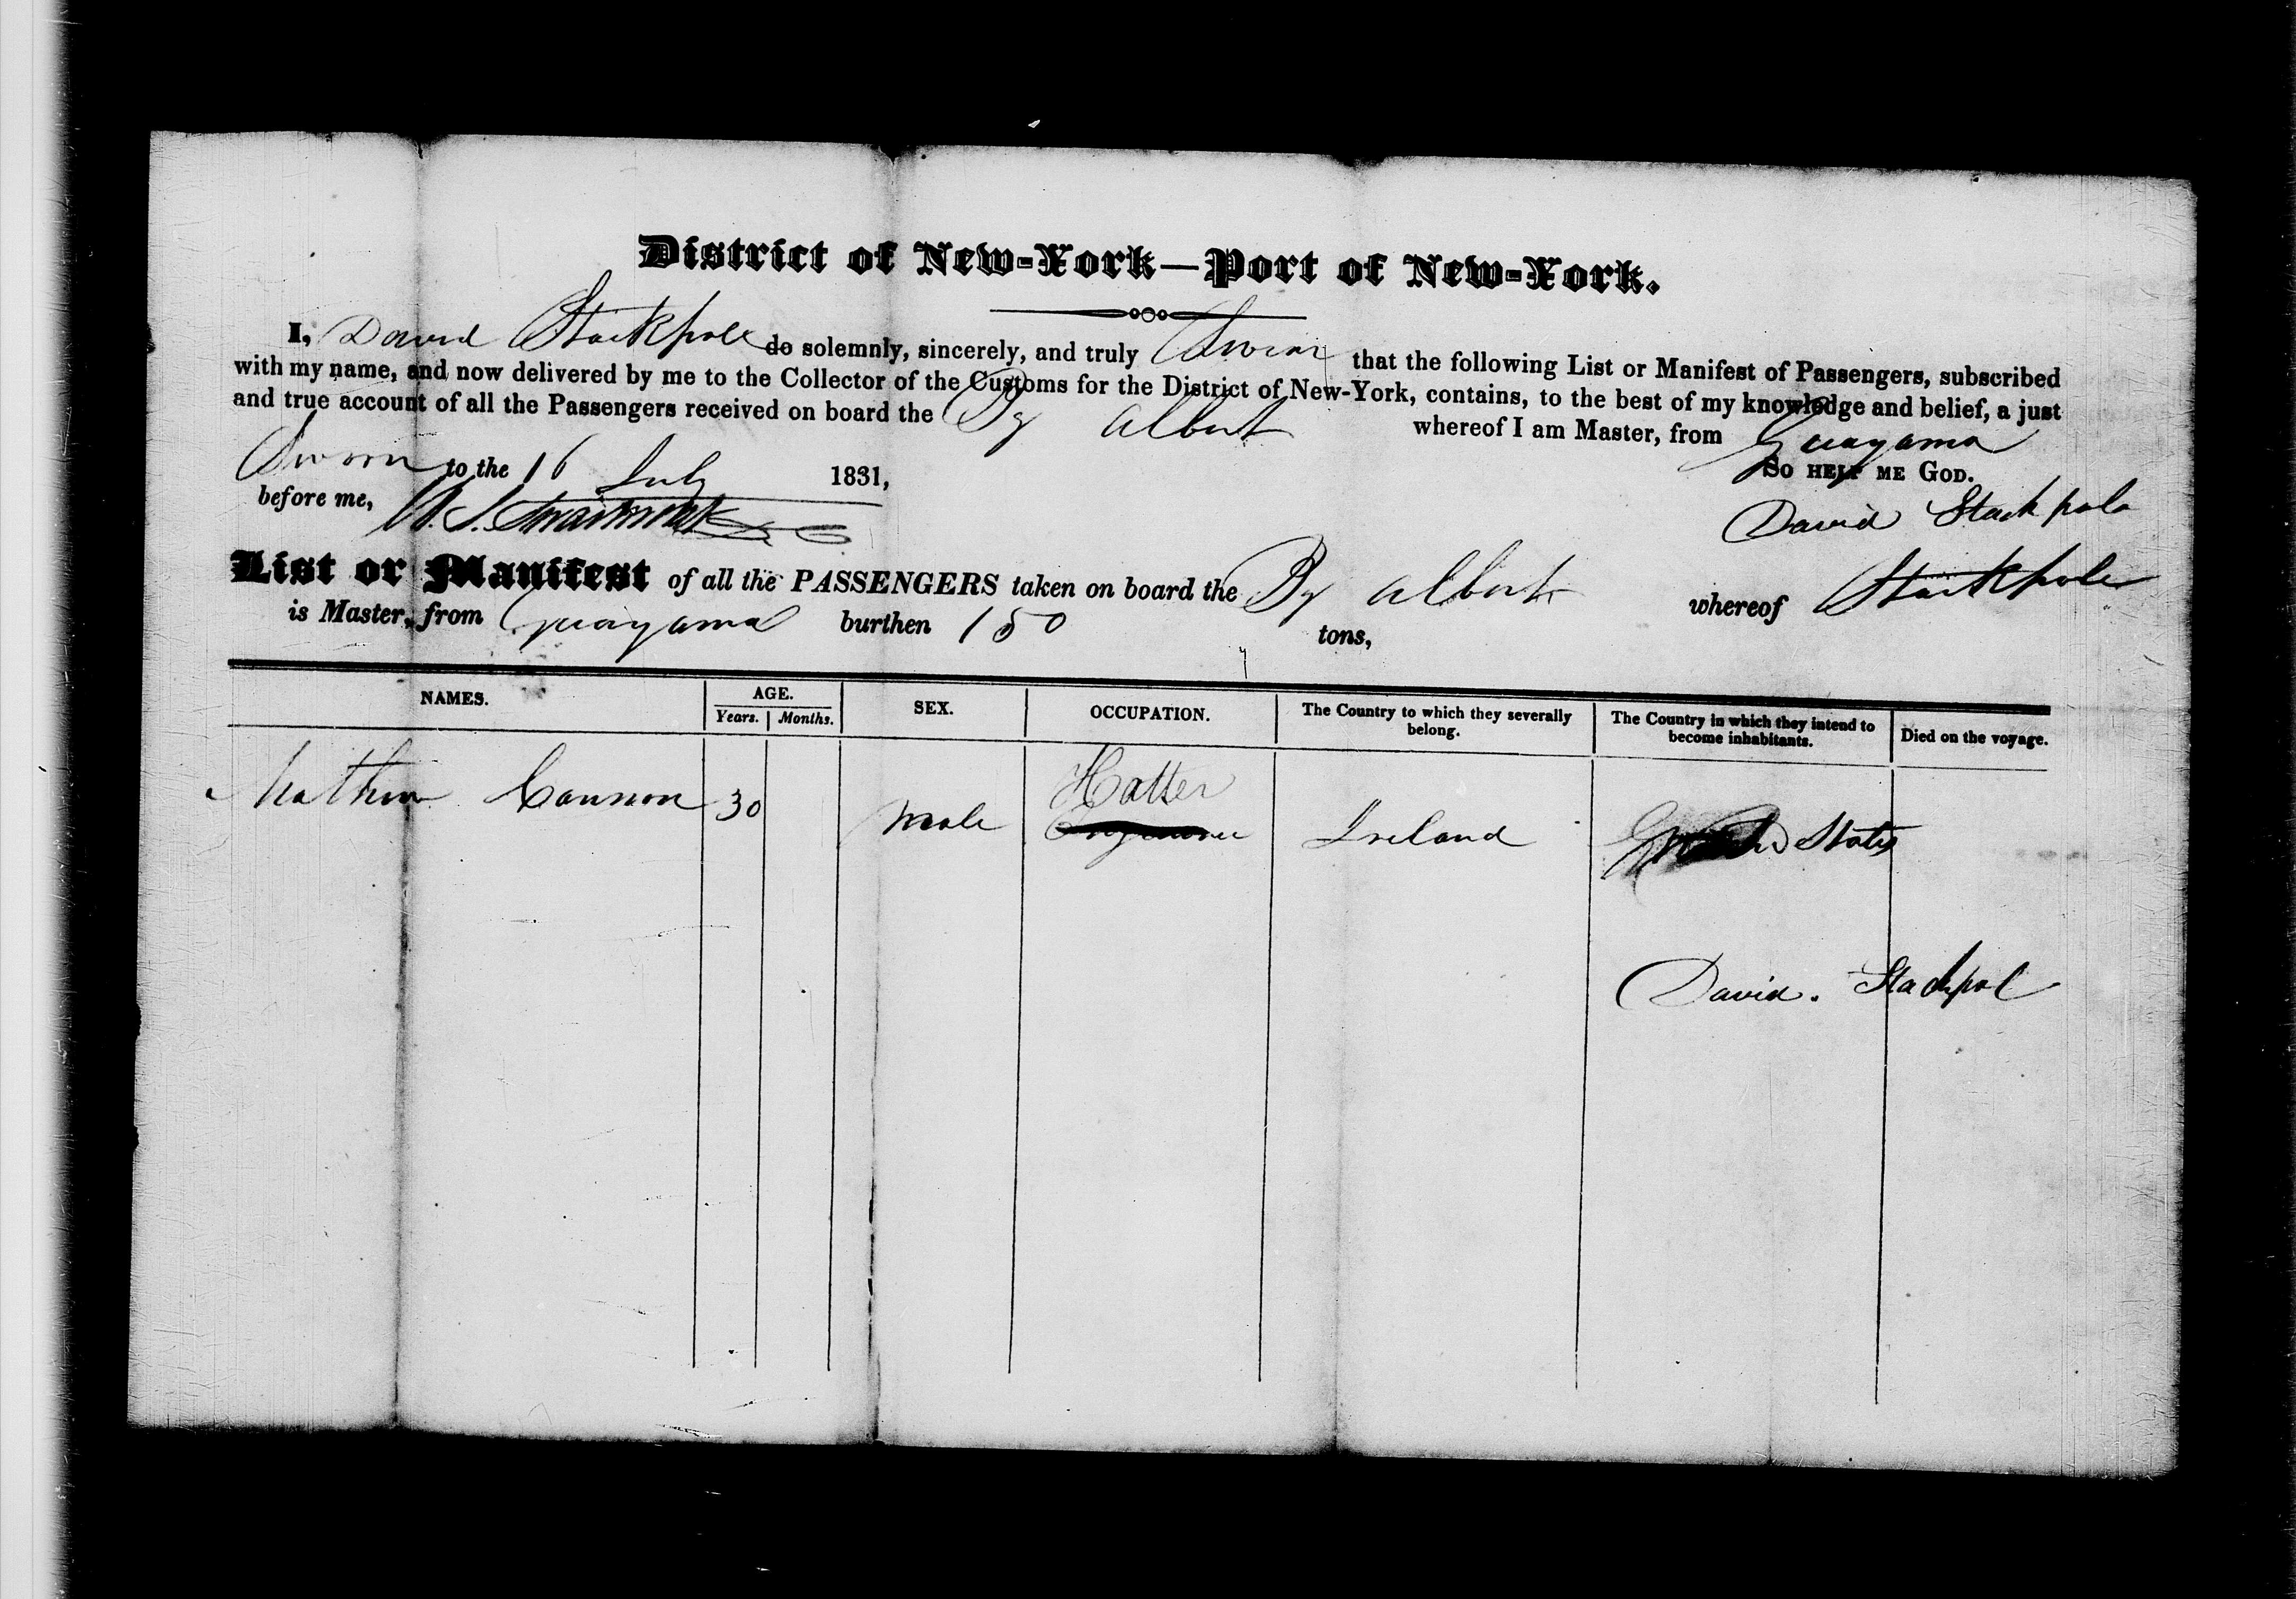 District of New-York—Port of New-York.
I, David Stackpole do solemnly, sincerely, and truly Swear that the following List or Manifest of Passengers, subscribed
with my name, and now delivered by me to the Collector of the Customs for the District of New-York, contains, to the best of my knowledge and belief, a just
and true account of all the Passengers received on board the Bg Albert whereof I am Master, from Guayama
Sworn to the 16 July 1831, So help me God.
before me, David Stackpole
List or Manifest of all the PASSENGERS taken on board the Bg Albert whereof Stackpole
is Master, from Guayama burthen 150 tons,
NAMES. AGE. SEX. OCCUPATION. The Country to which they severally belong. The Country in which they intend to become inhabitants. Died on the voyage.
Years. Months.
Mathew Cannon 30 Male Hatter Ireland States
David. Stackpol